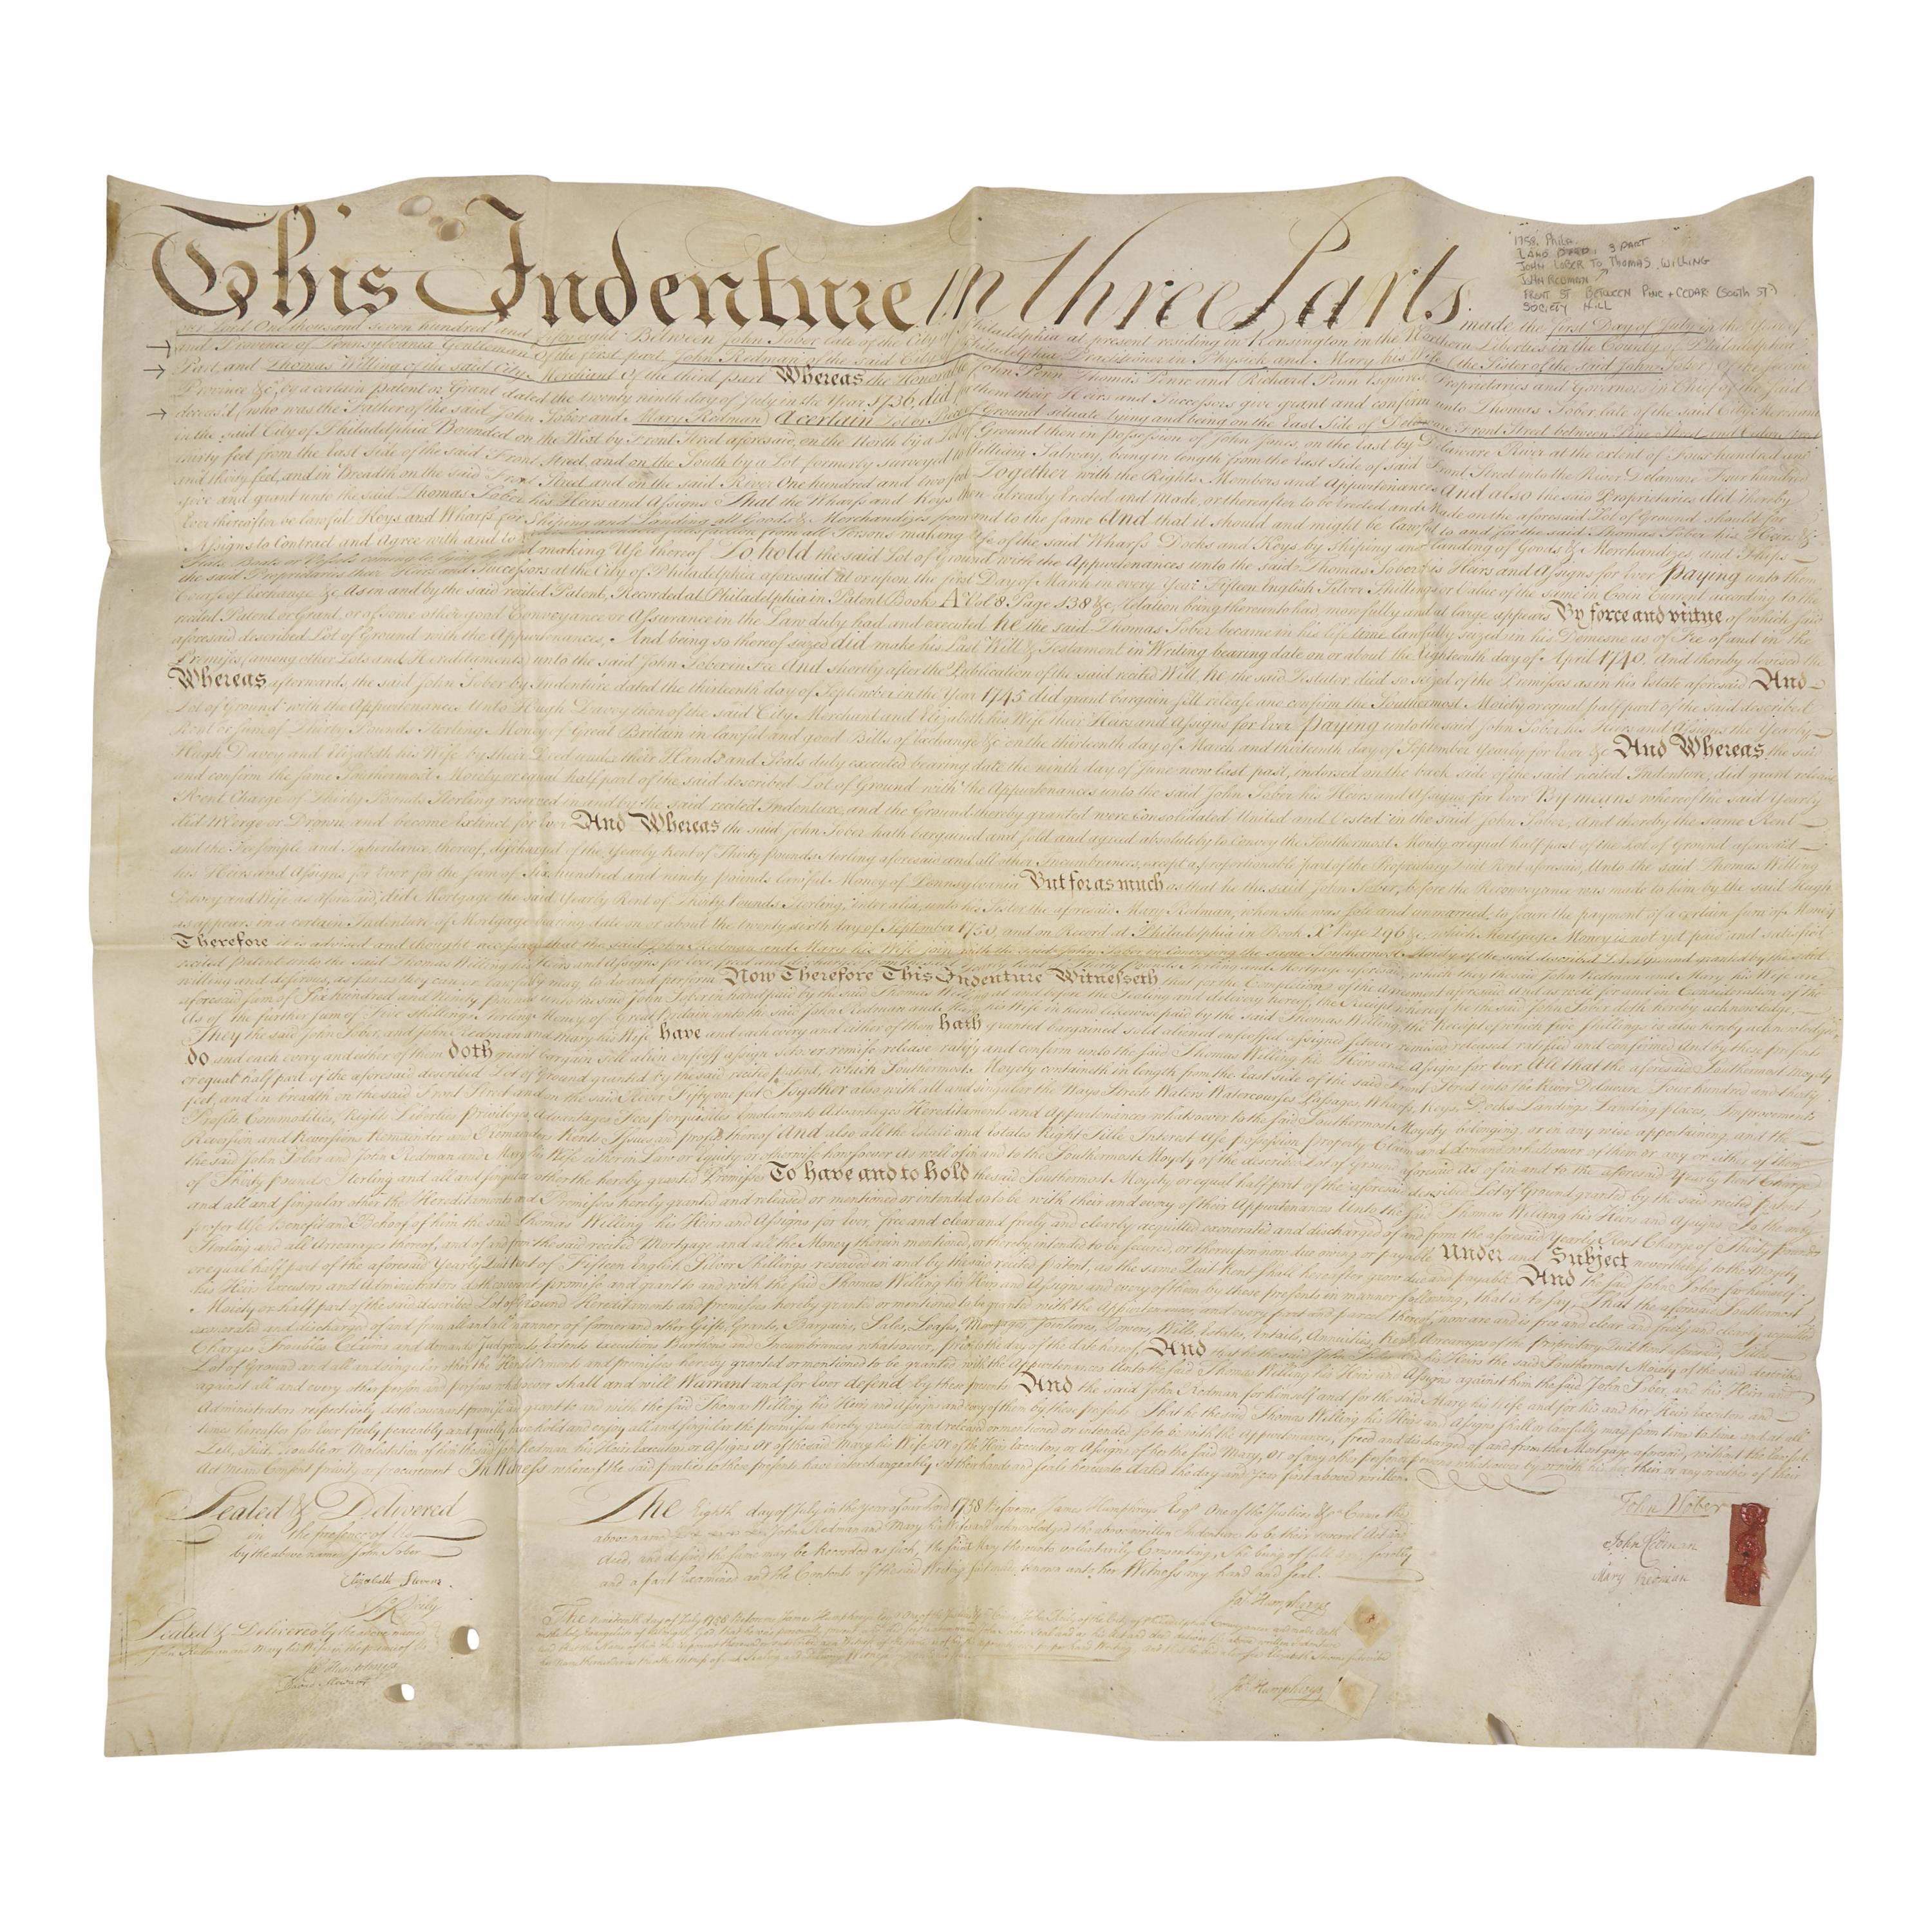 This Indenture in three Parts
1758, Phila.
Land Deed, 3 part
John Lober to Thomas Willing
John Redman
Front St Between Pine + Cedar (South St)
Society Hill
made the first Day of July in the Year of
our Lord One thousand seven hundred and fifty eight Between John Sober late of the City of Philadelphia at present residing in Kensington in the Northern Liberties in the County of Philadelphia
and Province of Pennsylvania Gentleman Of the first part John Redman of the said City of Philadelphia Practitioner in Physick and Mary his Wife (the Sister of the said John Sober) Of the second
Part, and Thomas Willing of the said City Merchant Of the third part Whereas the Honorable John Penn Thomas Penn and Richard Penn Esquires Proprietaries and Governors in Chief of the said
Province &c, by a certain patent or Grant dated the twenty ninth day of July in the Year 1736, did for them their Heirs and Successors give grant and confirm unto Thomas Sober late of the said City Merchant
deceas'd (who was the Father of the said John Sober and Mary Redman) A certain Lot or Piece of Ground situate lying and being on the East Side of Delaware Front Street between Pine Street and Cedar Street
in the said City of Philadelphia Bounded on the West by Front Street aforesaid, on the North by a Lot of Ground then in possession of John Jones, on the East by Delaware River at the extent of Four hundred and
thirty feet from the East Side of the said Front Street and on the South by a Lot formerly surveyed to William Salway, being in length from the East Side of said Front Street into the River Delaware Four hundred
and thirty feet, and in Breadth on the said Front Street and on the said River One hundred and two feet Together with the Rights Members and Appurtenances And also the said Proprietaries did thereby
give and grant unto the said Thomas Sober his Heirs and Assigns That the Wharfs and Keys then already Erected and Made, or thereafter to be Erected and Made on the aforesaid Lot of Ground should for
Ever thereafter be lawful Keys and Wharfs for Shiping and Landing all Goods & Merchandizes from and to the same And that it should and might be lawful to and for the said Thomas Sober his Heirs &
Assigns to Contract and Agree with and to reasonable satisfaction from all Persons making Use of the said Wharfs Docks and Keys by Shiping and landing of Goods & Merchandizes, and Ships
making Use thereof To hold the said Lot of Ground with the Appurtenances unto the said Thomas Sober his Heirs and Assigns for Ever Paying unto them
the said Proprietaries their Heirs and Successors at the City of Philadelphia aforesaid at or upon the first Day of March in every Year Fifteen English Silver Shillings or Value of the same in Coin Current according to the
Course of Exchange &c As in and by the said recited Patent, Recorded at Philadelphia in Patent Book A Vol 8 Page 138 &c, relation being thereunto had, more fully and at large appears By force and virtue of which said
recited Patent or Grant, or of some other good Conveyance or Assurance in the Law duly had and executed he the said Thomas Sober became in his life time lawfully seized in his Demesne as of Fee of and in the
aforesaid described Lot of Ground with the Appurtenances, And being so thereof seized did make his Last Will & Testament in Writing bearing date on or about the Eighteenth day of April 1740. And thereby devised the
Premises (among other Lots and Hereditaments) unto the said John Sober in Fee And shortly after the Publication of the said recited Will, he the said Testator died so seized of the Premisses as in his Estate aforesaid And
Whereas afterwards, the said John Sober by Indenture dated the thirteenth day of September in the Year 1745 did grant bargain sell release and confirm the Southermost Moiety or equal half part of the said described
Lot of Ground with the Appurtenances Unto Hugh Davey then of the said City Merchant and Elizabeth his Wife their Heirs and Assigns for Ever Paying unto the said John Sober his Heirs and Assigns the Yearly
Rent or sum of Thirty Pounds Sterling Money of Great Britain in lawful and good Bills of Exchange &c on the thirteenth day of March and thirteenth day of September Yearly for Ever &c And Whereas the said
Hugh Davey and Elizabeth his Wife by their Deed under their Hands and Seals duly executed bearing date the ninth day of June now last past, indorsed on the back side of the said recited Indenture, did grant release
and confirm the same Southermost Moiety or equal half part of the said described Lot of Ground with the Appurtenances unto the said John Sober his Heirs and Assigns for Ever By means whereof the said Yearly
Rent Charge of Thirty Pounds Sterling reserved in and by the said recited Indenture, and the Ground thereby granted were Consolidated United and Vested in the said John Sober, And thereby the same Rent
did Merge or Drown and become Extinct for Ever And Whereas the said John Sober hath bargained and sold and agreed absolutely to Convey the Southermost Moiety or equal half part of the Lot of Ground aforesaid
and the Feesimple and Inheritance thereof, discharged of the Yearly Rent of Thirty pounds Sterling aforesaid and all other Incumbrances, except a proportionable part of the Proprietary Quit Rent aforesaid, Unto the said Thomas Willing
his Heirs and Assigns for Ever for the sum of Six hundred and ninety pounds lawful Money of Pennsylvania But for as much as that he the said John Sober, before the Reconveyance was made to him by the said Hugh
Davey and Wife as aforesaid, did Mortgage the said Yearly Rent of Thirty Pounds Sterling, inter alia, unto his Sister the aforesaid Mary Redman, when she was sole and unmarried, to secure the payment of a certain sum of Money
as appears in a certain Indenture of Mortgage bearing date on or about the twenty sixth day of September 1750 and on Record at Philadelphia in Book X Page 296 &c, which Mortgage Money is not yet paid and satisfied
Therefore it is advised and thought necessary that the said John Redman and Mary his Wife join with the said John Sober in Conveying the same Southermost Moiety of the said described Lot of Ground granted by the said
recited Patent unto the said Thomas Willing his Heirs and Assigns for Ever and Mortgage aforesaid, which they the said John Redman and Mary his Wife are
willing and desirous, as far as they can or lawfully may, to do and perform Now Therefore This Indenture Witnesseth that for the Completion of the Agreement aforesaid And as well for and in Consideration of the
aforesaid sum of Six hundred and Ninety pounds unto the said John Sober in hand paid by the said Thomas Willing at and before the Sealing and delivery hereof, the Receipt whereof he the said John Sober doth hereby acknowledge,
As of the further sum of Five shillings Sterling Money of Great Britain unto the said John Redman and Mary his Wife in hand likewise paid by the said Thomas Willing, the Receipt of which five shillings is also hereby acknowledged,
They the said John Sober, and John Redman and Mary his Wife have and each every and either of them hath granted bargained sold aliened enfeoffed assigned setover remised released ratified and confirmed And by these presents
do and each every and either of them doth grant bargain sell alien enfeoff assign setover remise release ratify and confirm unto the said Thomas Willing his Heirs and Assigns for Ever All that the aforesaid Southermost Moyety
or equal half part of the aforesaid described Lot of Ground granted by the said recited patent, which Southermost Moyety containeth in length from the East side of the said Front Street into the River Delaware Four hundred and thirty
feet, and in breadth on the said Front Street and on the said River Fifty one feet Together also with all and singular the Ways Streets Waters Watercourses Passages, Wharfs, Keys, Docks Landings Landing places, Improvements
Profits Commodities, Rights Liberties priviledges Advantages Hereditaments and Appurtenances whatsoever to the said Southermost Moyety belonging, or in any wise appertaining, and the
Reversion and Reversions Remainder and Remainders Rents Issues and profits thereof And also all the Estate and Estates Right Title Interest Use possession property Claim and demand whatsoever of them or any or either of them
the said John Sober and John Redman and Mary his Wife either in Law or Equity or otherwise howsoever As well of in and to the Southermost Moyety of the described Lot of Ground aforesaid As of in and to the aforesaid Yearly Rent Charge
of Thirty pounds Sterling and all and singular other the hereby granted Premisses To have and to hold the said Southermost Moyety or equal half part of the aforesaid described Lot of Ground granted by the said recited patent,
and all and singular other the Hereditaments and Premisses hereby granted and released or mentioned or intended so to be with their and every of their Appurtenances Unto the said Thomas Willing his Heirs and Assigns To the only
proper Use Benefit and Behoof of him the said Thomas Willing his Heirs and Assigns for Ever, free and clear and freely and clearly acquitted exonerated and discharged of and from the aforesaid Yearly Rent Charge of Thirty pounds
Sterling and all Arrearages thereof, and of and from the said recited Mortgage and all the Money therein mentioned, or thereby intended to be secured, or thereupon now due owing or payable Under and Subject nevertheless to the Moiety
or equal half part of the aforesaid Yearly Quit Rent of Fifteen English Silver Shillings reserved in and by the said recited Patent, as the same Quit Rent shall hereafter grow due and payable And the said John Sober for himself
his Heirs Executors and Administrators doth covenant promise and grant to and with the said Thomas Willing his Heirs and Assigns and every of them by these presents in manner following, that is to say, That the aforesaid Southermost
Moiety or half part of the said described Lot of Ground Hereditaments and premisses hereby granted or mentioned to be granted with the Appurtenances, and every part and parcel thereof, now are and is free and clear and freely and clearly acquitted
exonerated and discharged of and from all and all manner of former and other Gifts, Grants, Bargains, Sales, Leases, Mortgages Jointures, Dowers, Wills, Estates, Entails, Annuities, Rents Arrearages of the Proprietary Quit Rent aforesaid
Charges Troubles Claims and demands Judgments, Extents Executions Burthens and Incumbrances whatsoever, prior to the day of the date hereof And that he the said John Sober and his Heirs the said Southermost Moiety of the said described
Lot of Ground and all and singular other the Hereditaments and premisses hereby granted or mentioned to be granted with the Appurtenances Unto the said Thomas Willing his Heirs and Assigns against him the said John Sober, and his Heirs and
against all and every other person and persons whatsoever shall and will Warrant and for Ever defend by these presents And the said John Redman for himself and for the said Mary his Wife and for his and her Heirs Executors and
Administrators respectively doth covenant promise and grant to and with the said Thomas Willing his Heirs and Assigns and every of them by these presents That he the said Thomas Willing his Heirs and Assigns shall or lawfully may from time to time and at all
times hereafter for Ever freely peaceably and quietly have hold and enjoy all and singular the premisses hereby granted and released or mentioned or intended so to be with the Appurtenances, freed and discharged of and from the Mortgage aforesaid, without the lawful
Lett, Suit, Trouble or Molestation of him the said John Redman his Heirs Executors or Assigns Or of the said Mary his Wife Or of the Heirs Executors or Assigns of her the said Mary, Or of any other person or persons whatsoever by or with his her their or any or either of their
Act Means Consent privity or procurement In Witness whereof the said parties to these presents have interchangeably set their hands and seals hereunto dated the day and Year first above written
Sealed & Delivered
in the presence of Us
by the above named John Sober
Elizabeth Stevens
Sealed & Delivered by the above named
John Redman and Mary his Wife in the presence of Us
Ja. Humphreys
The Eighth day of July in the Year of our Lord 1758 Before me James Humphreys Esqr. One of the Justices &c Came the
above named John Redman and Mary his Wife and acknowledged the above written Indenture to be their several Act and
deed, and desired the same may be Recorded as such, the said Mary thereunto voluntarily Consenting, She being of full age secretly
and apart Examined and the Contents of the said Writing first made known unto her Witness my hand and seal.
Ja. Humphreys
day of July 1758 Before me James Humphreys Esqr
Ja. Humphreys
John Sober
John Redman
Mary Redman